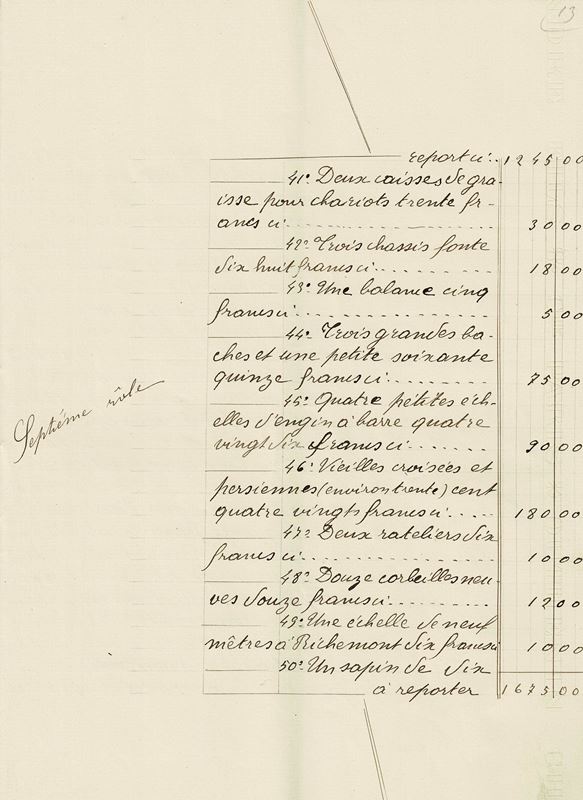 13
report ci:. 1245 00
41º Deux caisses de gra-
isse pour chariots trente fr-
ancs ci 30 00
42º Trois chassis fonte
dix huit francs ci 18 00
43º Une balance cinq
francs ci 5 00
44º Trois grandes ba-
ches et une petite soixante
quinze francs ci 75 00
45º Quatre petites éch-
elles d'engin à barre quatre
vingt dix francs ci 90 00
46º Vieilles croisées et
persiennes (environ trente) cent
quatre vingts francs ci 180 00
47º Deux rateliers dix
francs ci 10 00
48º Douze corbeilles neu-
ves douze francs ci 12 00
49º Une échelle de neuf
mètres à Richemont dix francs ci 10 00
50º Un sapin de dix
à reporter 1675 00
Septième rôle